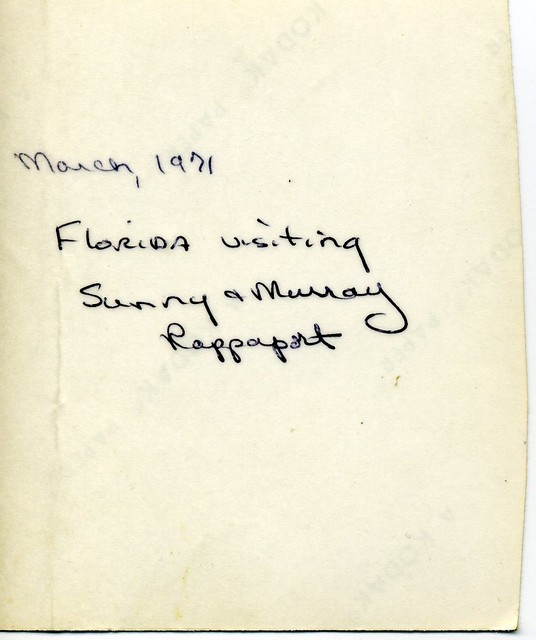 March, 1971
FLORIDA visiting
Sunny & Murray
Rappaport
KODAK PAPER
KODAK PAPER
KODAK PAPER
A KODAK